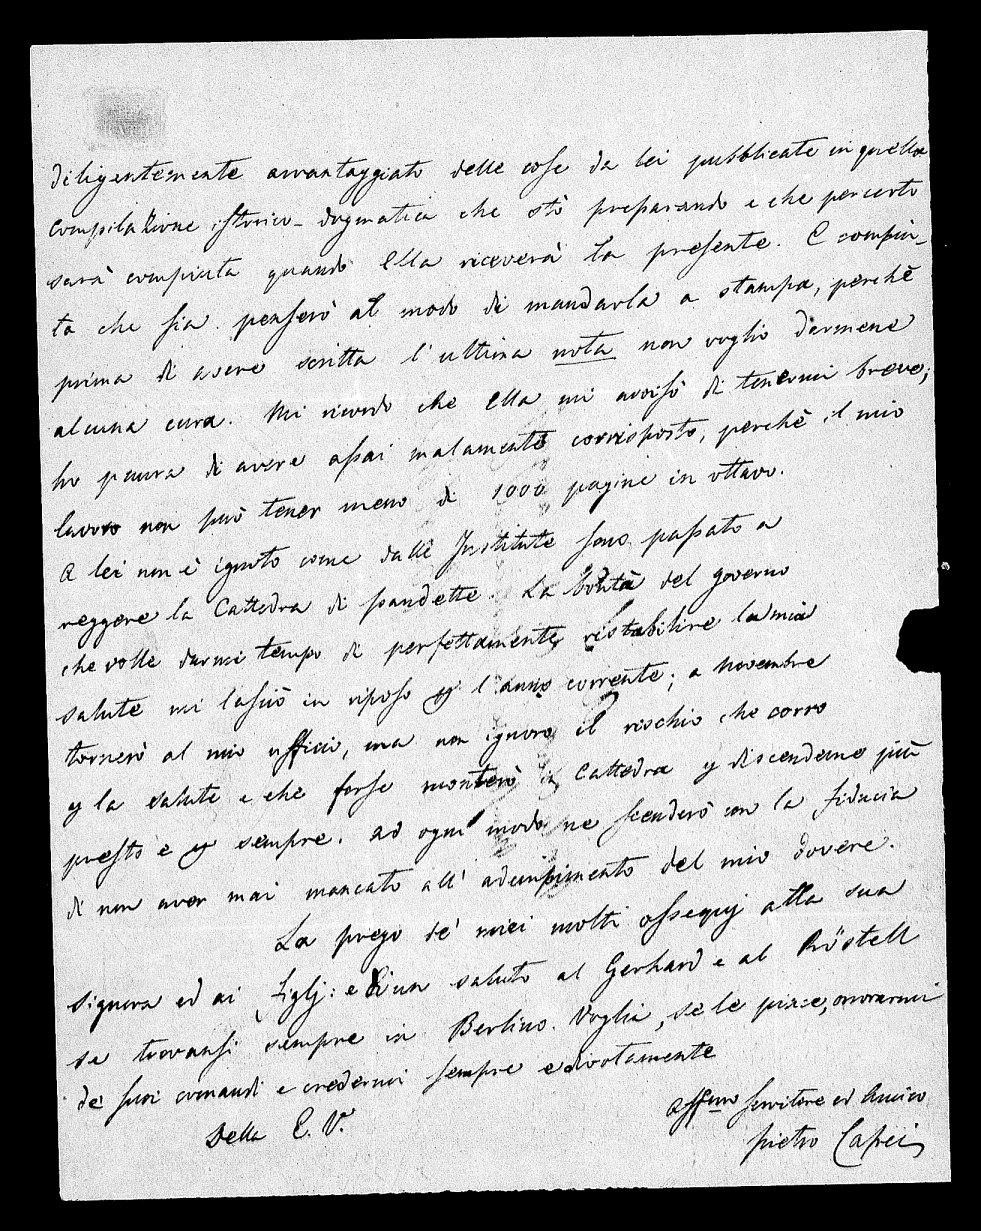 diligentemente avvantaggiato delle cose da lei pubblicate in quella
compilazione istorico-dogmatica che stò preparando e che percerto
sarà compiuta quando Ella riceverà la presente. E compiu-
ta che sia penserò al modo di mandarla a stampa, perchè
prima di avere scritta l'ultima nota non voglio darmene
alcuna cura. Mi ricordo che Ella mi avvisò di tenermi breve;
ho paura di avere assai malamente corrisposto, perchè il mio
lavoro non può tener meno di 1000 pagine in ottavo.
A lei non è ignoto come dalle Institute sono passato a
reggere la Cattedra di pandette. La bontà del governo
che volle darmi tempo di perfettamente ristabilire la mia
salute mi lasciò in riposo p l'anno corrente; a Novembre
tornerò al mio ufficio, ma non ignoro il rischio che corro
p la salute e che forse monterò in Cattedra p discenderne più
presto e p sempre. Ad ogni modo ne scenderò con la fiducia
di non aver mai mancato all' adempimento del mio dovere.
La prego de' miei molti ossequj alla sua
Signora ed ai figlj: e di un saluto al Gerhard e al Röstell
se trovansi sempre in Berlino. Voglia, se le piace, onorarmi
de' suoi comandi e credermi sempre e divotamente
Della E. V.
Affmo servitore ed Amico
Pietro Capei